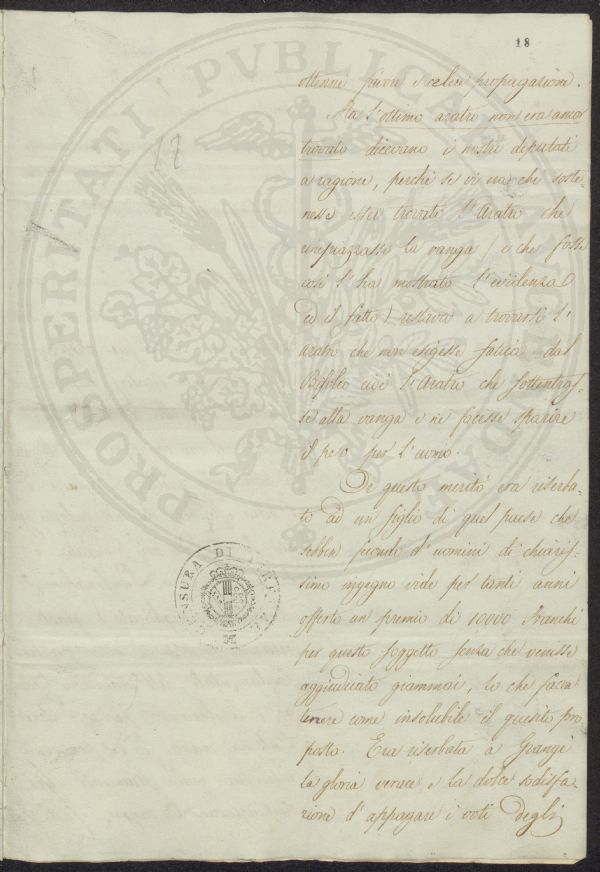 18
ottenne favore e celere propagazione.
Ma l'ottimo aratro non era ancor
trovato dicevano i nostri deputati
a ragione, perchè se vi era chi soste-
nesse esser trovato l'Aratro che
rimpiazzasse la vanga, e che fosse
così l'ha mostrato l'evidenza
ed il fatto) restava a trovarsi l'
aratro che non esigesse fatica dal
Bifolco cioè l'Aratro che sottentras-
se alla vanga e ne facesse sparire
il peso per l'uomo.
Di questo merito era riserba-
to ad un figlio di quel paese che
sebben fecondo d'uomini di chiaris-
simo ingegno vide per tanti anni
offerto un premio di 10000 Franchi
per questo soggetto senza che venisse
aggiudicato giammai, lo che facea
tenere come insolubile il quesito pro
posto. Era riserbata a Grangé
la gloria verace e la dolce sodisfa-
zione d'appagare i voti degli
18
PROSPERITATI PVBLICAE
CENSURA DI